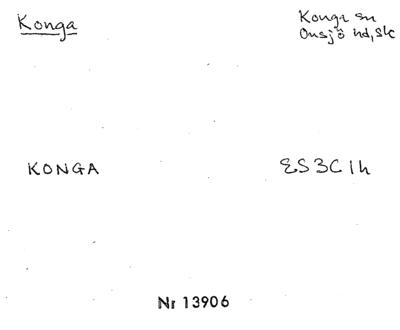 Konga
Konga sn
Onsjö hd, Sk
KONGA
ES3C1h
Nr 13906